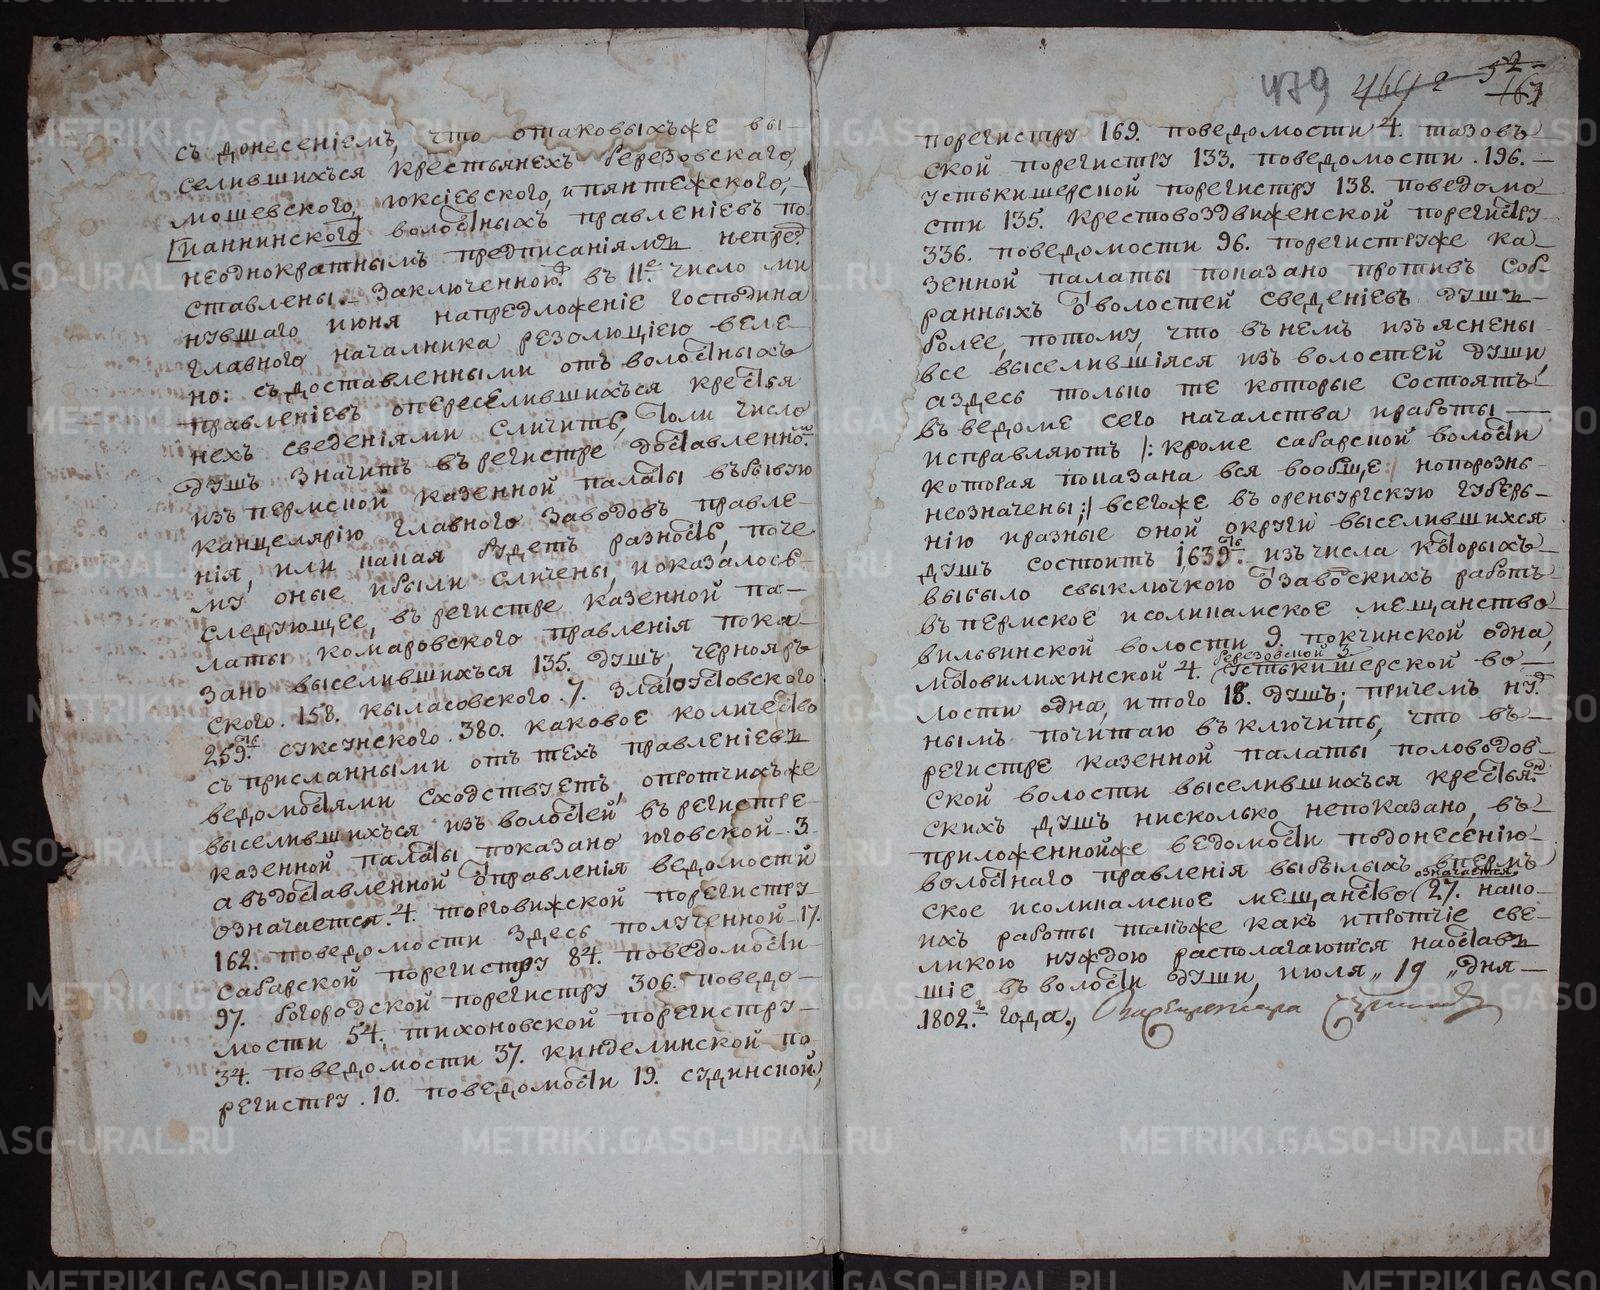 съ донесенiемъ, что отаковыхъже вы-
селившихъся крестьянехъ березовскаго,
мошевского, юксiевского, ипянтежского,-
[ианнинского волостныхъ правленiевъ по
неоднократнымъ предписанiямъ непред
ставлены. Заключенной въ 11е число ми
нувшаго июня напредложенiе господина
главного началника резолюцiею веле
но: съдоставленными отъ волостныхъ
правленiевъ опереселившихъся крестья
нехъ сведенiями сличить, толи число
душъ значитъ врегистре доставленной
изъ пермской казенной палаты въбывую
канцелярiю главного заводовъ правле
нiя, или какая будетъ разность, поче
му оные ибыли сличены, ипоказалось
следующее, въ регистре казенной па-
латы комаровского правленiя пока-
зано выселившихъся 135. душъ, чернояръ
ского. 158. кыласовского. 7. златоустовского
259ть. суксунского. 380. каковое количество
съ присланными отъ техъ правленiевъ
ведомостями сходствуетъ, опротчихъже
выселившихъся изъ волостей въ регистре
казенной палаты показано юговской. 3
авъдоставленной отправленiя ведомостей
означается. 4. торговижской порегистру
162. поведомости здесь полученной 17.
сабарской порегистру 84. поведомости
97. богородской порегистру 306. поведо-
мости 54. тихоновской порегистру-
34. поведомости 37. кинделинской по
регистру. 10. поведомости 19. судинской,
479 464 2 52
161
порегистру 169. поведомости 4. тазовъ
ской порегистру 133. поведомости. 196.-
устькишерской порегистру 138. поведомо
сти 135. крестовоздвиженской порегистру
336. поведомости 96. порегиструже ка-
зенной палаты показано противъ соб-
ранныхъ отволостей сведенiевъ душъ-
более, потому, что внемъ изъяснены
все выселившiяся изъ волостей души,
аздесь только те которые состоятъ
въ ведоме сего началства иработы
исправляютъ /: кроме сабарской волости
которая показана вся вообще: нопорознь-
неозначены;/ всегоже въ оренбургскую губерь-
нiю иразные оной округи выселившихся
душъ состоитъ 1639ть. изъ числа которыхъ
выбыло свыключкою отзаводскихъ работъ
въ пермское исоликамское мещанство
вильвинской волости 9. покчинской одна,
березовской 3
мотовилихинской 4. устькишерской во-
лости одна, итого 18. душъ; причемъ нуж
нымъ почитаю включить, что въ-
регистре казенной палаты половодов-
ской волости выселившихъся крестьян
скихъ душъ нисколько непоказано, въ-
приложеннойже ведомости подонесенiю-
волостнаго правленiя выбылыхъ впермъ
означается
ское исоликамское мещанство 27. како-
ихъ работы такъже какъ ипротчiе све-
ликою нуждою располагаются наостав
шiе въ волости души, июля „ 19 „дня-
1802.го года.,